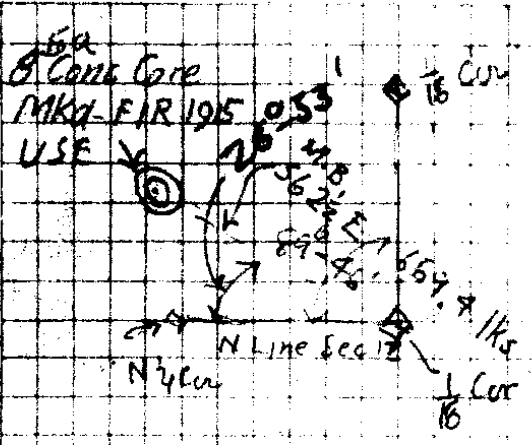 8 Conc Core
MKd-FIR 1915
USE
N 0°53'
1/16 Cor
M.B.
562
E
89-46.
664.4 lks
N Line Sec 12
N 1/4 Cor
1/16 Cor